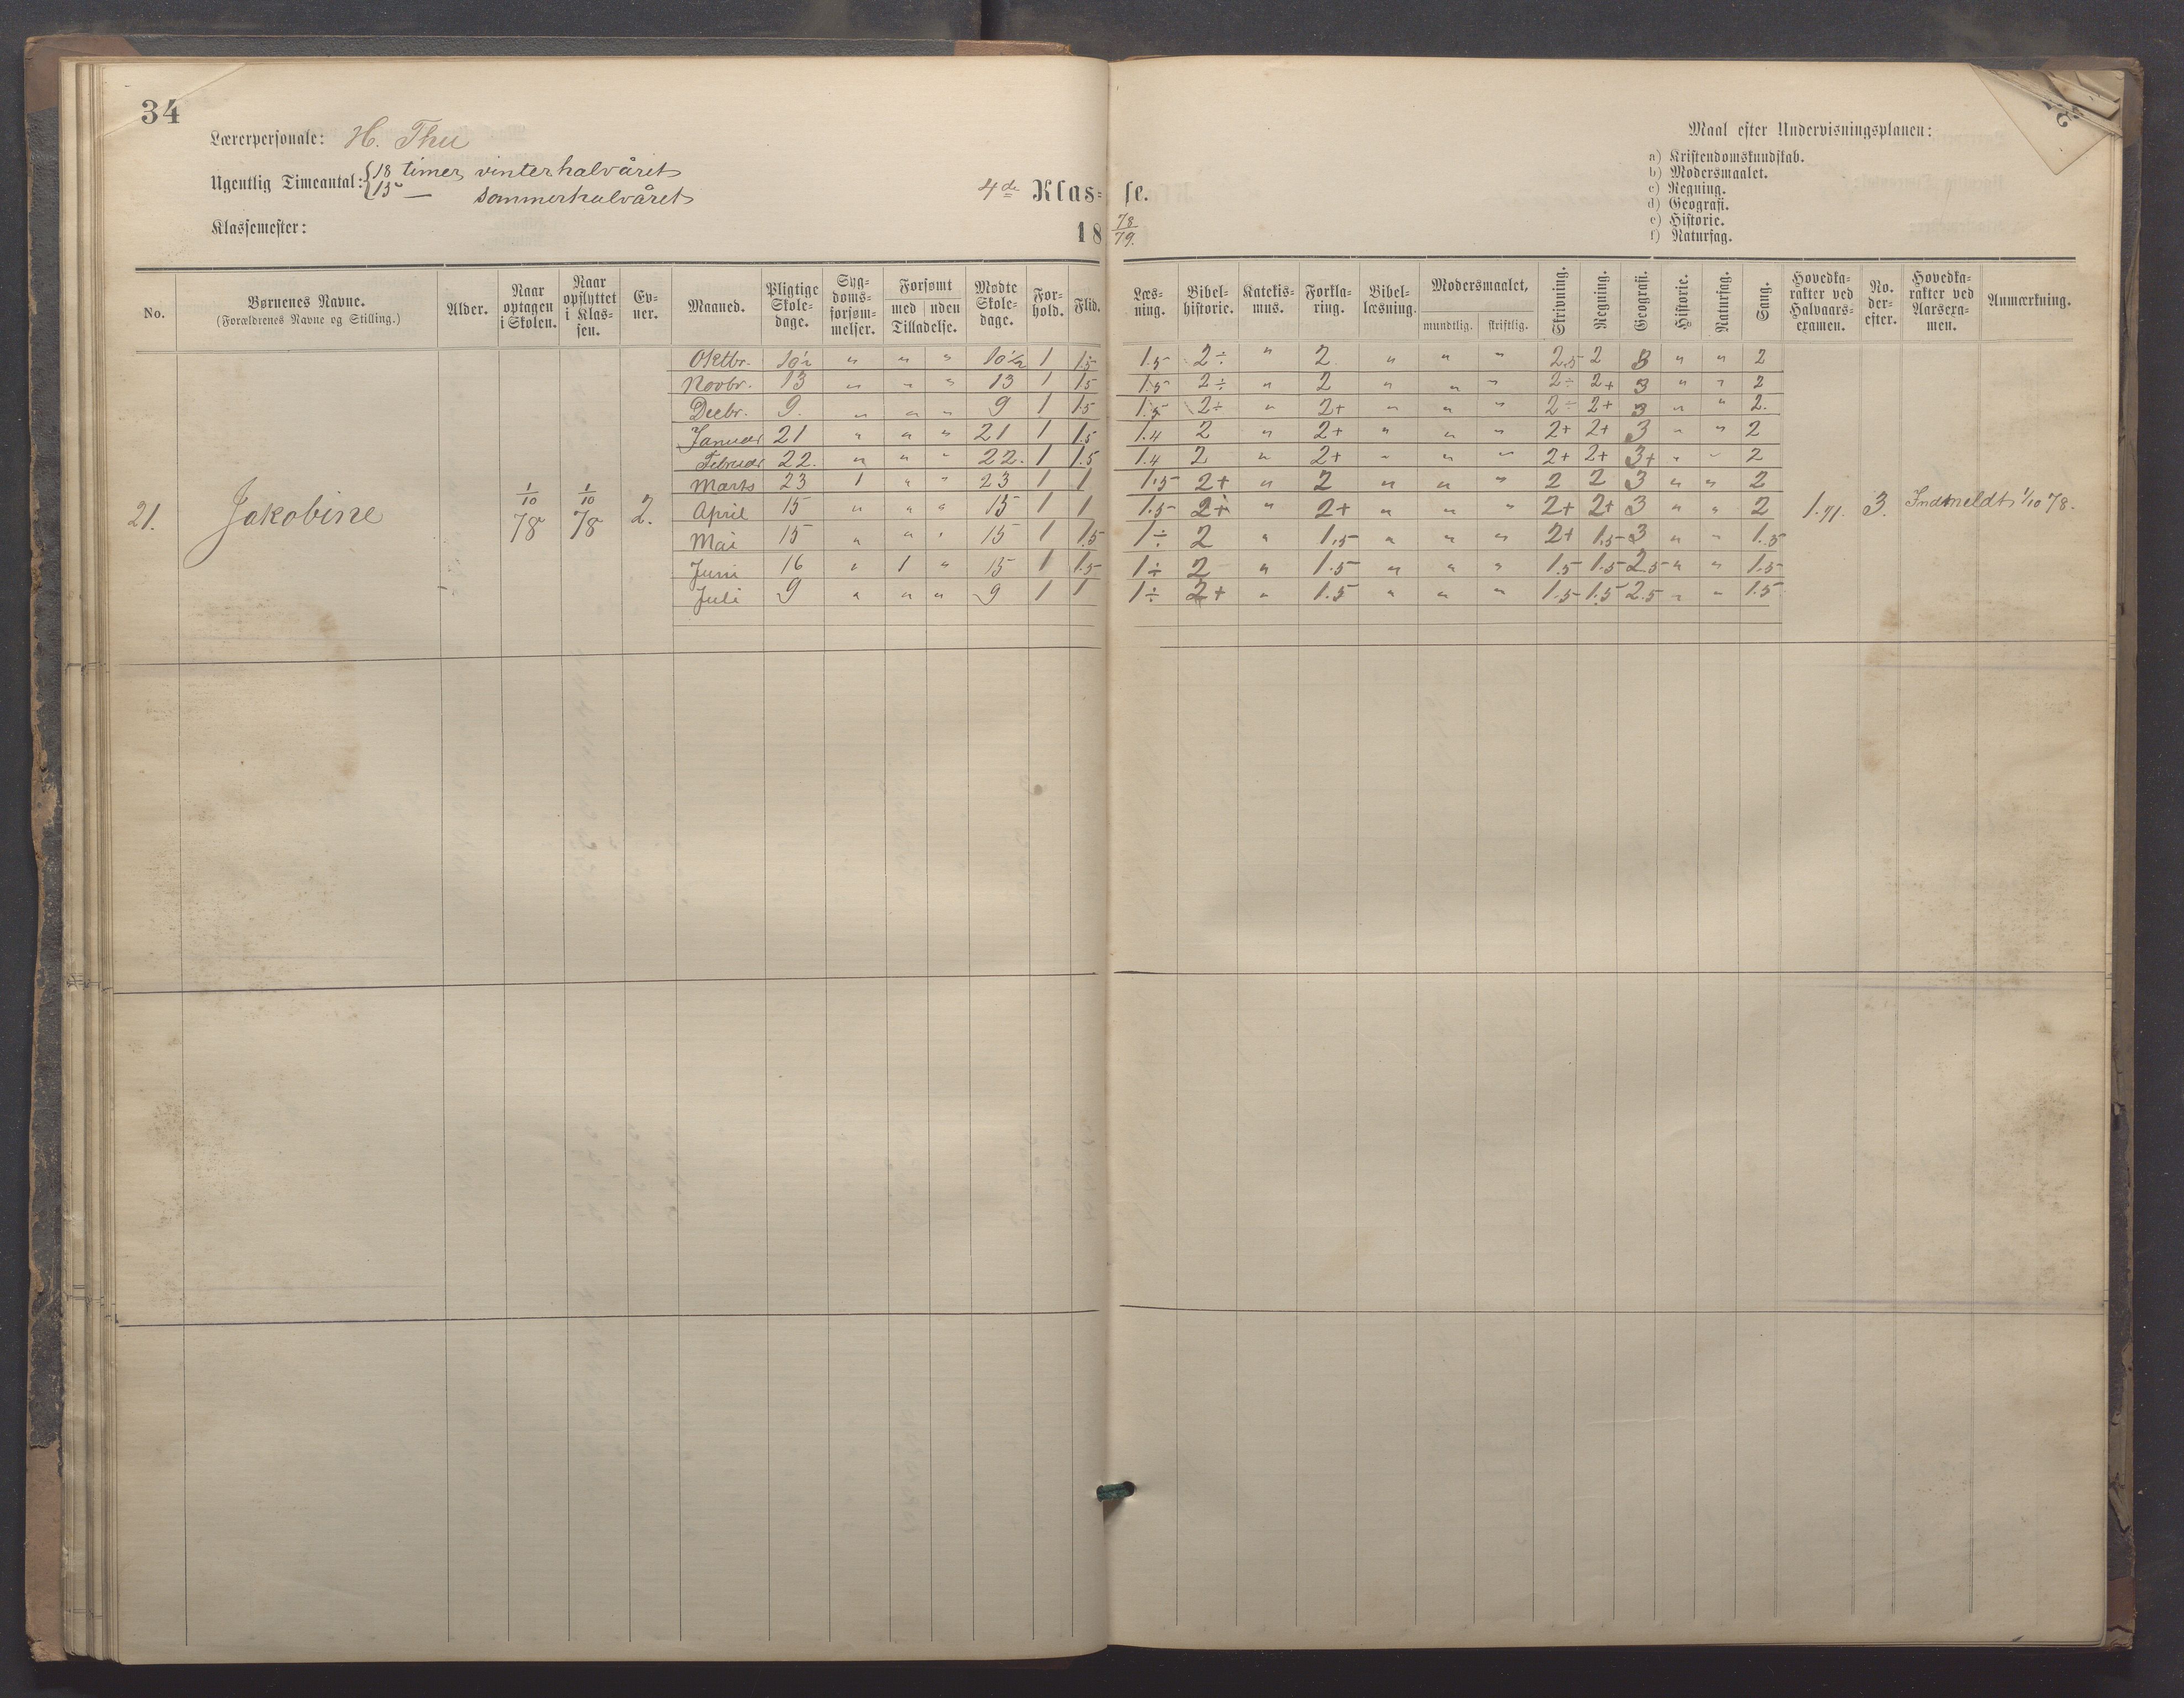 34
Lærerpersonale: H. Thu
Ugentlig Timeantal: {18 timer vinterhalvåret
{15 — sommerhalvåret
Klassemester:
4de Klas=
se.
18
78/79.
Maal efter Undervisningsplanen:
a) Kristendomskundskab.
b) Modersmaalet.
c) Regning.
d) Geografi.
e) Historie.
f) Naturfag.
No. | Børnenes Navne. (Forældrenes Navne og Stilling.) | Alder. | Naar optagen i Skolen. | Naar opflyttet i Klas=sen. | Ev=ner. | Maaned. | Pligtige Skole=dage. | Syg=doms=forsøm=melser. | Forsømt med Tilladelse. | uden Tilladelse. | Mødte Skole=dage. | For=hold. | Flid. | Læs=ning. | Bibel=historie. | Katekis=mus. | Forkla=ring. | Bibel=læsning. | Modersmaalet, mundtlig. | skriftlig. | Skrivning. | Regning. | Geografi. | Historie. | Naturfag. | Sang. | Hovedka=rakter ved Halvaars=examen. | No. der=efter. | Hovedka=rakter ved Aarsexa=men. | Anmærkning.
Oktbr. 10½ " " " 10½ 1 1.5 1.5 2÷ " 2 " " " 2.5 2 3 " " 2
Novbr. 13 " " " 13 1 1.5 1.5 2÷ " 2 " " " 2÷ 2+ 3 " " 2
Decbr. 9. " " " 9 1 1.5 1.5 2÷ " 2+ " " " 2÷ 2+ 3 " " 2.
Januar 21 " " " 21 1 1.5 1.4 2 " 2+ " " " 2+ 2+ 3 " " 2
Februar 22. " " " 22. 1 1.5 1.4 2 " 2+ " " " 2+ 2+ 3+ " " 2
Marts 23 1 " " 23 1 1 1.5 2+ " 2 " " " 2 2 3 " " 2
21. Jakobine 1/10 78 1/10 78 2. April 15 " " " 15 1 1 1.5 2+ " 2+ " " " 2+ 2+ 3 " " 2 1.71. 3. Indmeldt 1/10 78.
Mai 15 " " " 15 1 1.5 1÷ 2 " 1.5 " " " 2+ 1.5 3 " " 1.5
Juni 16 " 1 " 15 1 1.5 1÷ 2 " 1.5 " " " 1.5 1.5 2.5 " " 1.5
Juli 9 " " " 9 1 1 1÷ 2+ " 1.5 " " " 1.5 1.5 2.5 " " 1.5